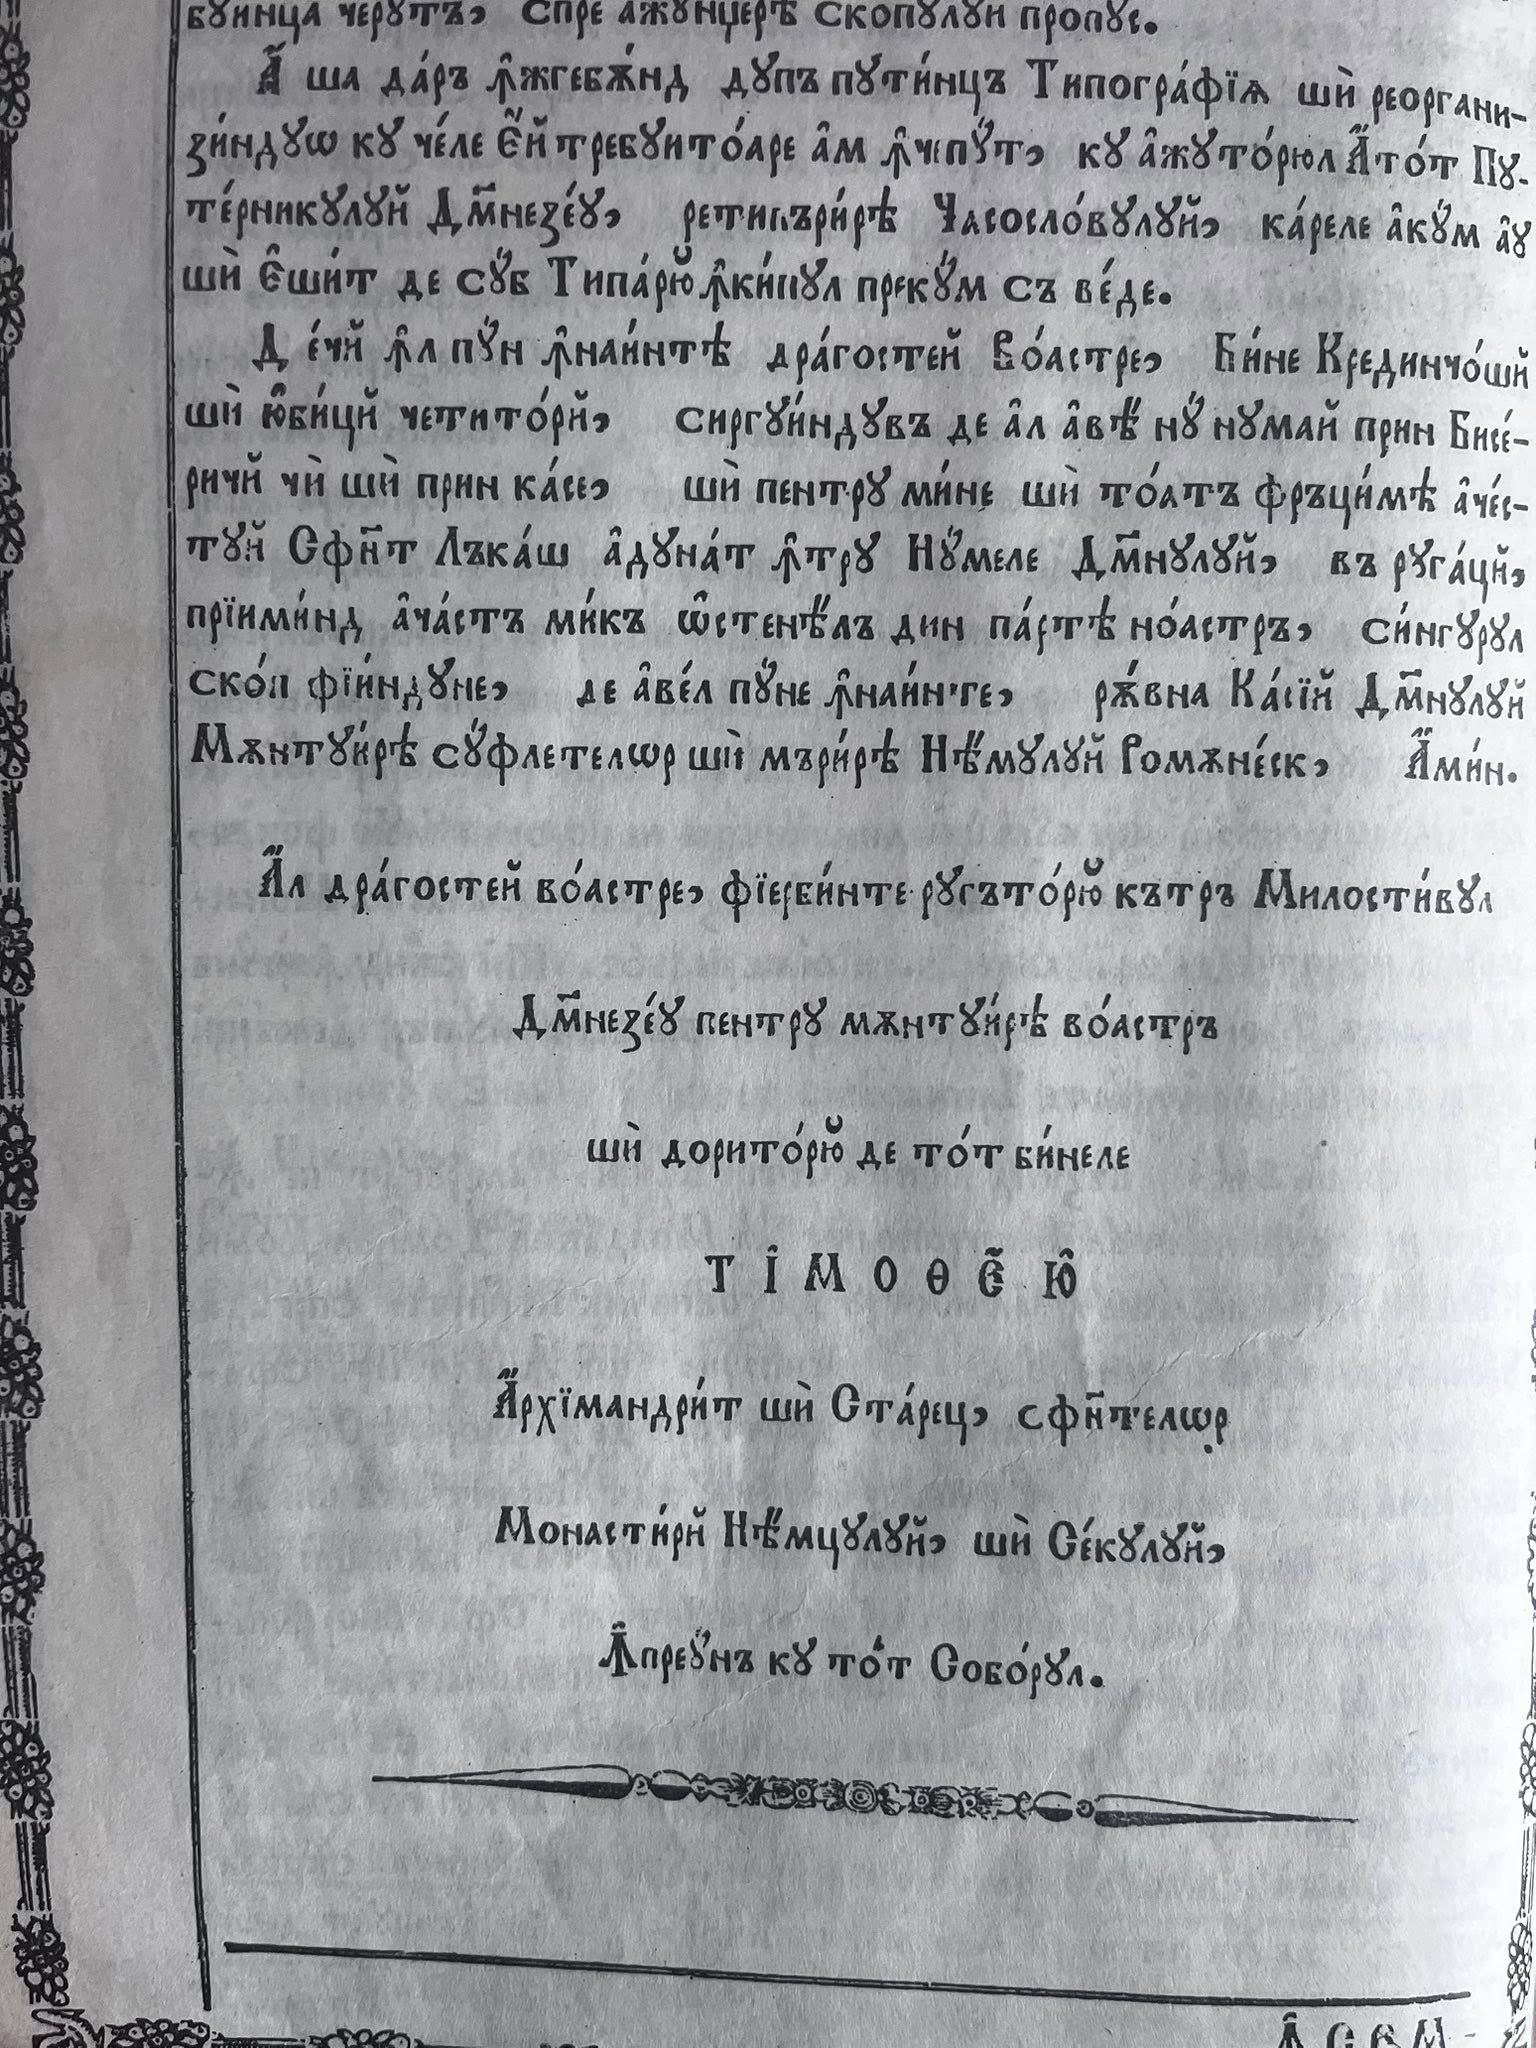 буинца черутъ, спре ажунџерѣ скопулуй пропус.
А҆́ша да́ръ ꙟ҆жгебѫ́нд дупъ пути́нцъ Типогра́фїѧ шѝ реоргани-
зи́ндуѡ ку че́ле є҆́й требуито́аре а҆м ꙟ҆чепу́т, ку а҆жуто́рюл А҆то́т Пу-
те́рникулуй Дм҃незе́у, ретипъри́рѣ Часосло́вулуй, ка́реле а҆ку́м а҆у
шѝ є҆ши́т де су́б Типа́рю̆ ꙟ҆ки́пул преку́м съ ве́де.
Де́чй ꙟ҆л пу́н ꙟ҆наи́нтѣ дра́гостей Во́астре, Би́не Крединчо́шй
шѝ ю҆би́цй четито́рй, сиргуи́ндувъ де а҆л а҆вѣ́ ну́ нумай прин Бисе́-
ричй чѝ шѝ прин ка́се, шѝ пентру ми́не шѝ то́атъ фръци́мѣ а҆че́с-
туй Сфн҃т Лъка́ш а҆дуна́т ꙟ҆тру Ну́меле Дм҃нулуй, въ руга́цй,
прїими́нд а҆ча́стъ ми́къ ѡ҆стенѣ́лъ дин па́ртѣ но́астръ, си́нгурул
ско́п фїи́ндуне, де а҆ве́л пу́не ꙟ҆наи́нте, рѫ́вна Ка́сїй Дм҃нулуй
Мѫнтуи́рѣ су́флетелѡр шѝ мъри́рѣ Нѣ́мулуй Ромѫне́ск, А҆ми́н.
А҆́л дра́гостей во́астре, фїерби́нте ругъто́рю̆ кътръ Милости́вул
Дм҃незе́у пентру мѫнтуи́рѣ во́астръ
шѝ дорито́рю̆ де то́т би́неле
ТІ҆МОѲЄ҆Ю҆
А҆́рхїмандри́т шѝ Ста́рец, сфн҃телѡр
Монасти́рй Нѣ́мцулуй, шѝ Се́кулуй,
Ꙟ҆преу́нъ ку то́т Собо́рул.